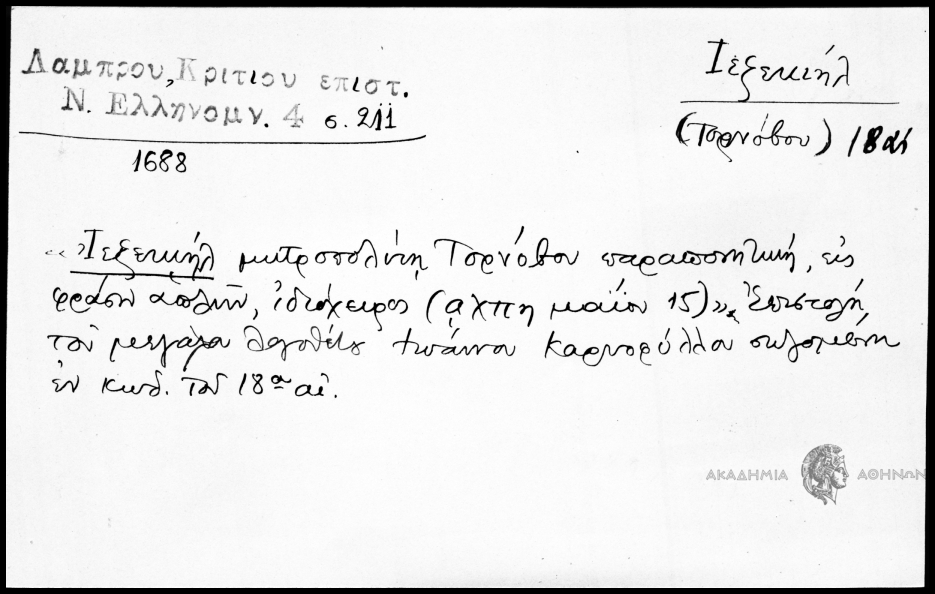 Λαμπρου, Κριτιου επιστ.
Ν. Ελληνομν. 4 σ. 211
1688
Ιεζεκιήλ
(Τορνόβου) 18 αι
«Ἰεζεκιήλ μητροπολίτῃ Τορνόβου παραπονητική, εἰς
φράσιν ἁπλῆν, ἰδιόχειρος (αχπη μαΐου 15)». Ἐπιστολή
τοῦ μεγάλου λογοθέτου Ἰωάννου Καρυοφύλλου σωζομένη
ἐν κωδ. τοῦ 18ου αἰ.
ΑΚΑΔΗΜΙΑ ΑΘΗΝΩΝ